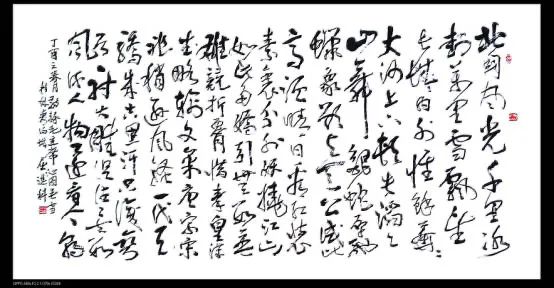 北国风光千里冰
封万里雪飘望
长城内外惟余莽莽
大河上下顿失滔滔
山舞银蛇原驰
蜡象欲与天公试比
高须晴日看红装
素裹分外妖娆江山
如此多娇引无数英
雄竞折腰惜秦皇汉
武略输文采唐宗宋
祖稍逊风骚一代天
骄成吉思汗只识弯
弓射大雕俱往矣数
风流人物还看今朝
丁酉之春月敬录毛主席词